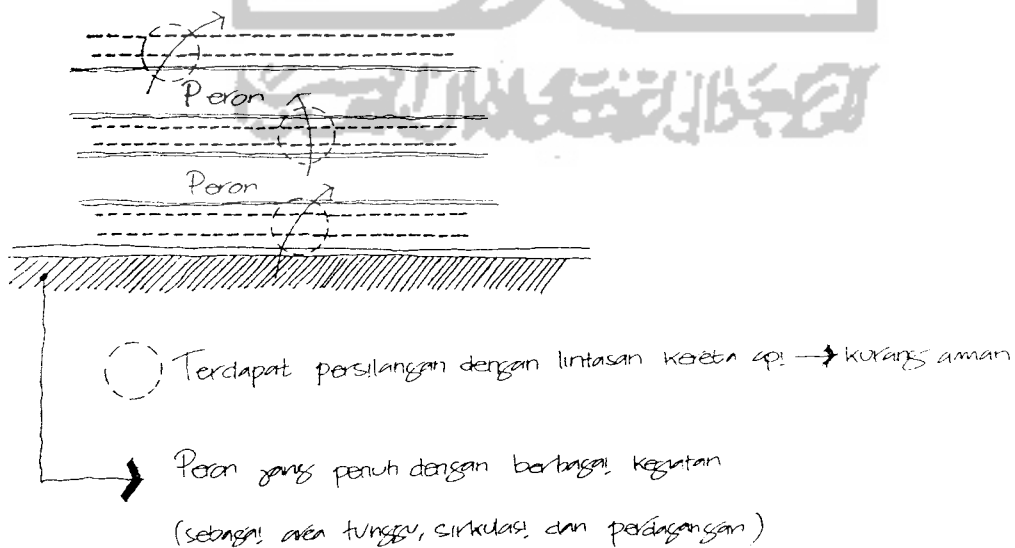 Peron
Peron
Terdapat persilangan dengan lintasan kereta api → kurang aman
Peron yang penuh dengan berbagai kegiatan
(sebagai area tunggu, sirkulasi dan perdagangan)